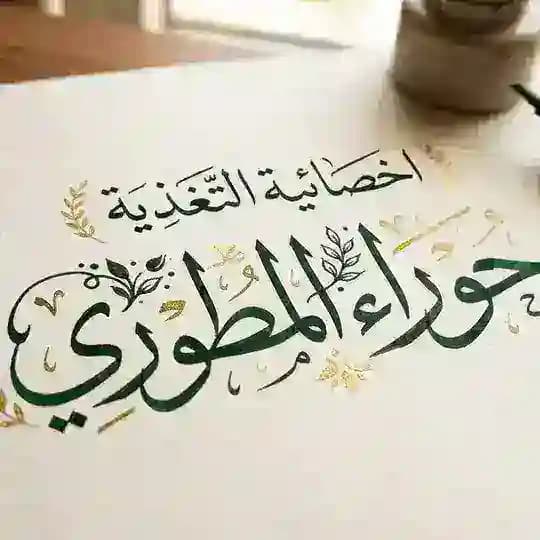 اخصائية التَّغَذِيَة
حَوراء المطوري